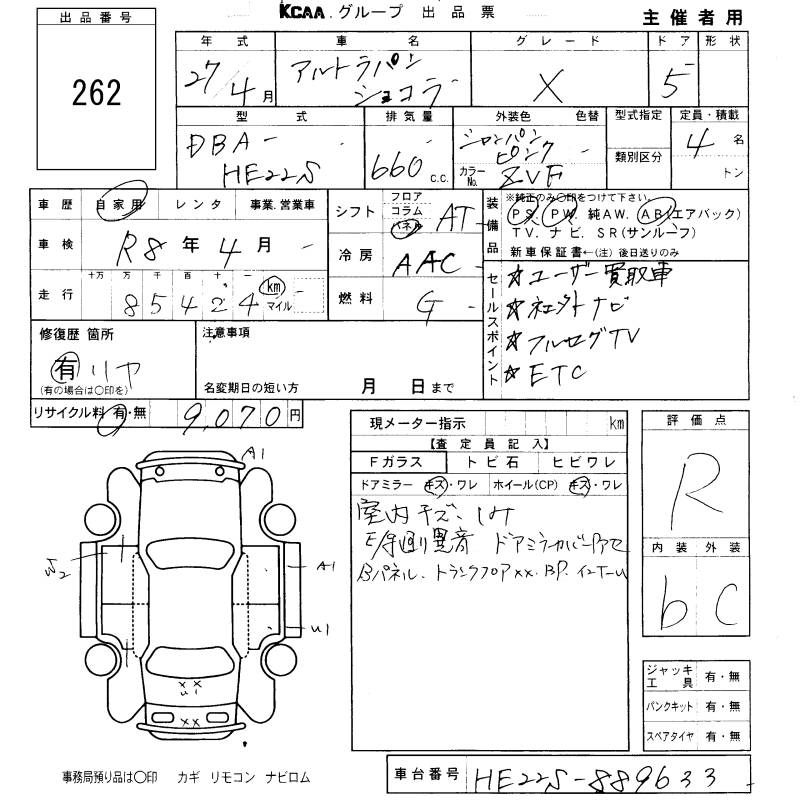 KCAA.グループ 出品票
主催者用
出品番号
262
年式 車名 グレード ドア 形状
27/4月 アルトラパン ショコラ X 5
型式 排気量 外装色 色替 型式指定 定員・積載
DBA- HE22S 660 c.c. シャンパンピンク カラーNo. ZVF 類別区分 4名 トン
車歴 自家用 レンタ 事業.営業車
車検 R8年4月
走行 十万 万 千 百 十 一
85424 km マイル
シフト フロア コラム パネル AT
冷房 AAC
燃料 G
装備品 ※純正のみ〇印をつけて下さい
PS. PW. 純AW. AB(エアバック)
TV. ナビ. SR(サンルーフ)
新車保証書←(注)後日送りのみ
セールスポイント
☆ユーザー買取車
☆ネクストナビ
☆フルセグTV
☆ETC
修復歴 箇所
有 リヤ
(有の場合は〇印を)
注意事項
名変期日の短い方 月 日まで
リサイクル料 有・無 9,070円
現メーター指示 km
【査定員記入】
Fガラス トビ石 ヒビワレ
ドアミラー キズ・ワレ ホイール(CP) キズ・ワレ
室内キズ、シミ
異音 ドアミラーカバー
Bパネル、トランクフロアXX. BP.
評価点
R
内装 外装
b C
A1
W2
A1
U1
XX
U1
XX
ジャッキ工具 有・無
パンクキット 有・無
スペアタイヤ 有・無
事務局預り品は〇印 カギ リモコン ナビロム
車台番号 HE22S-889633